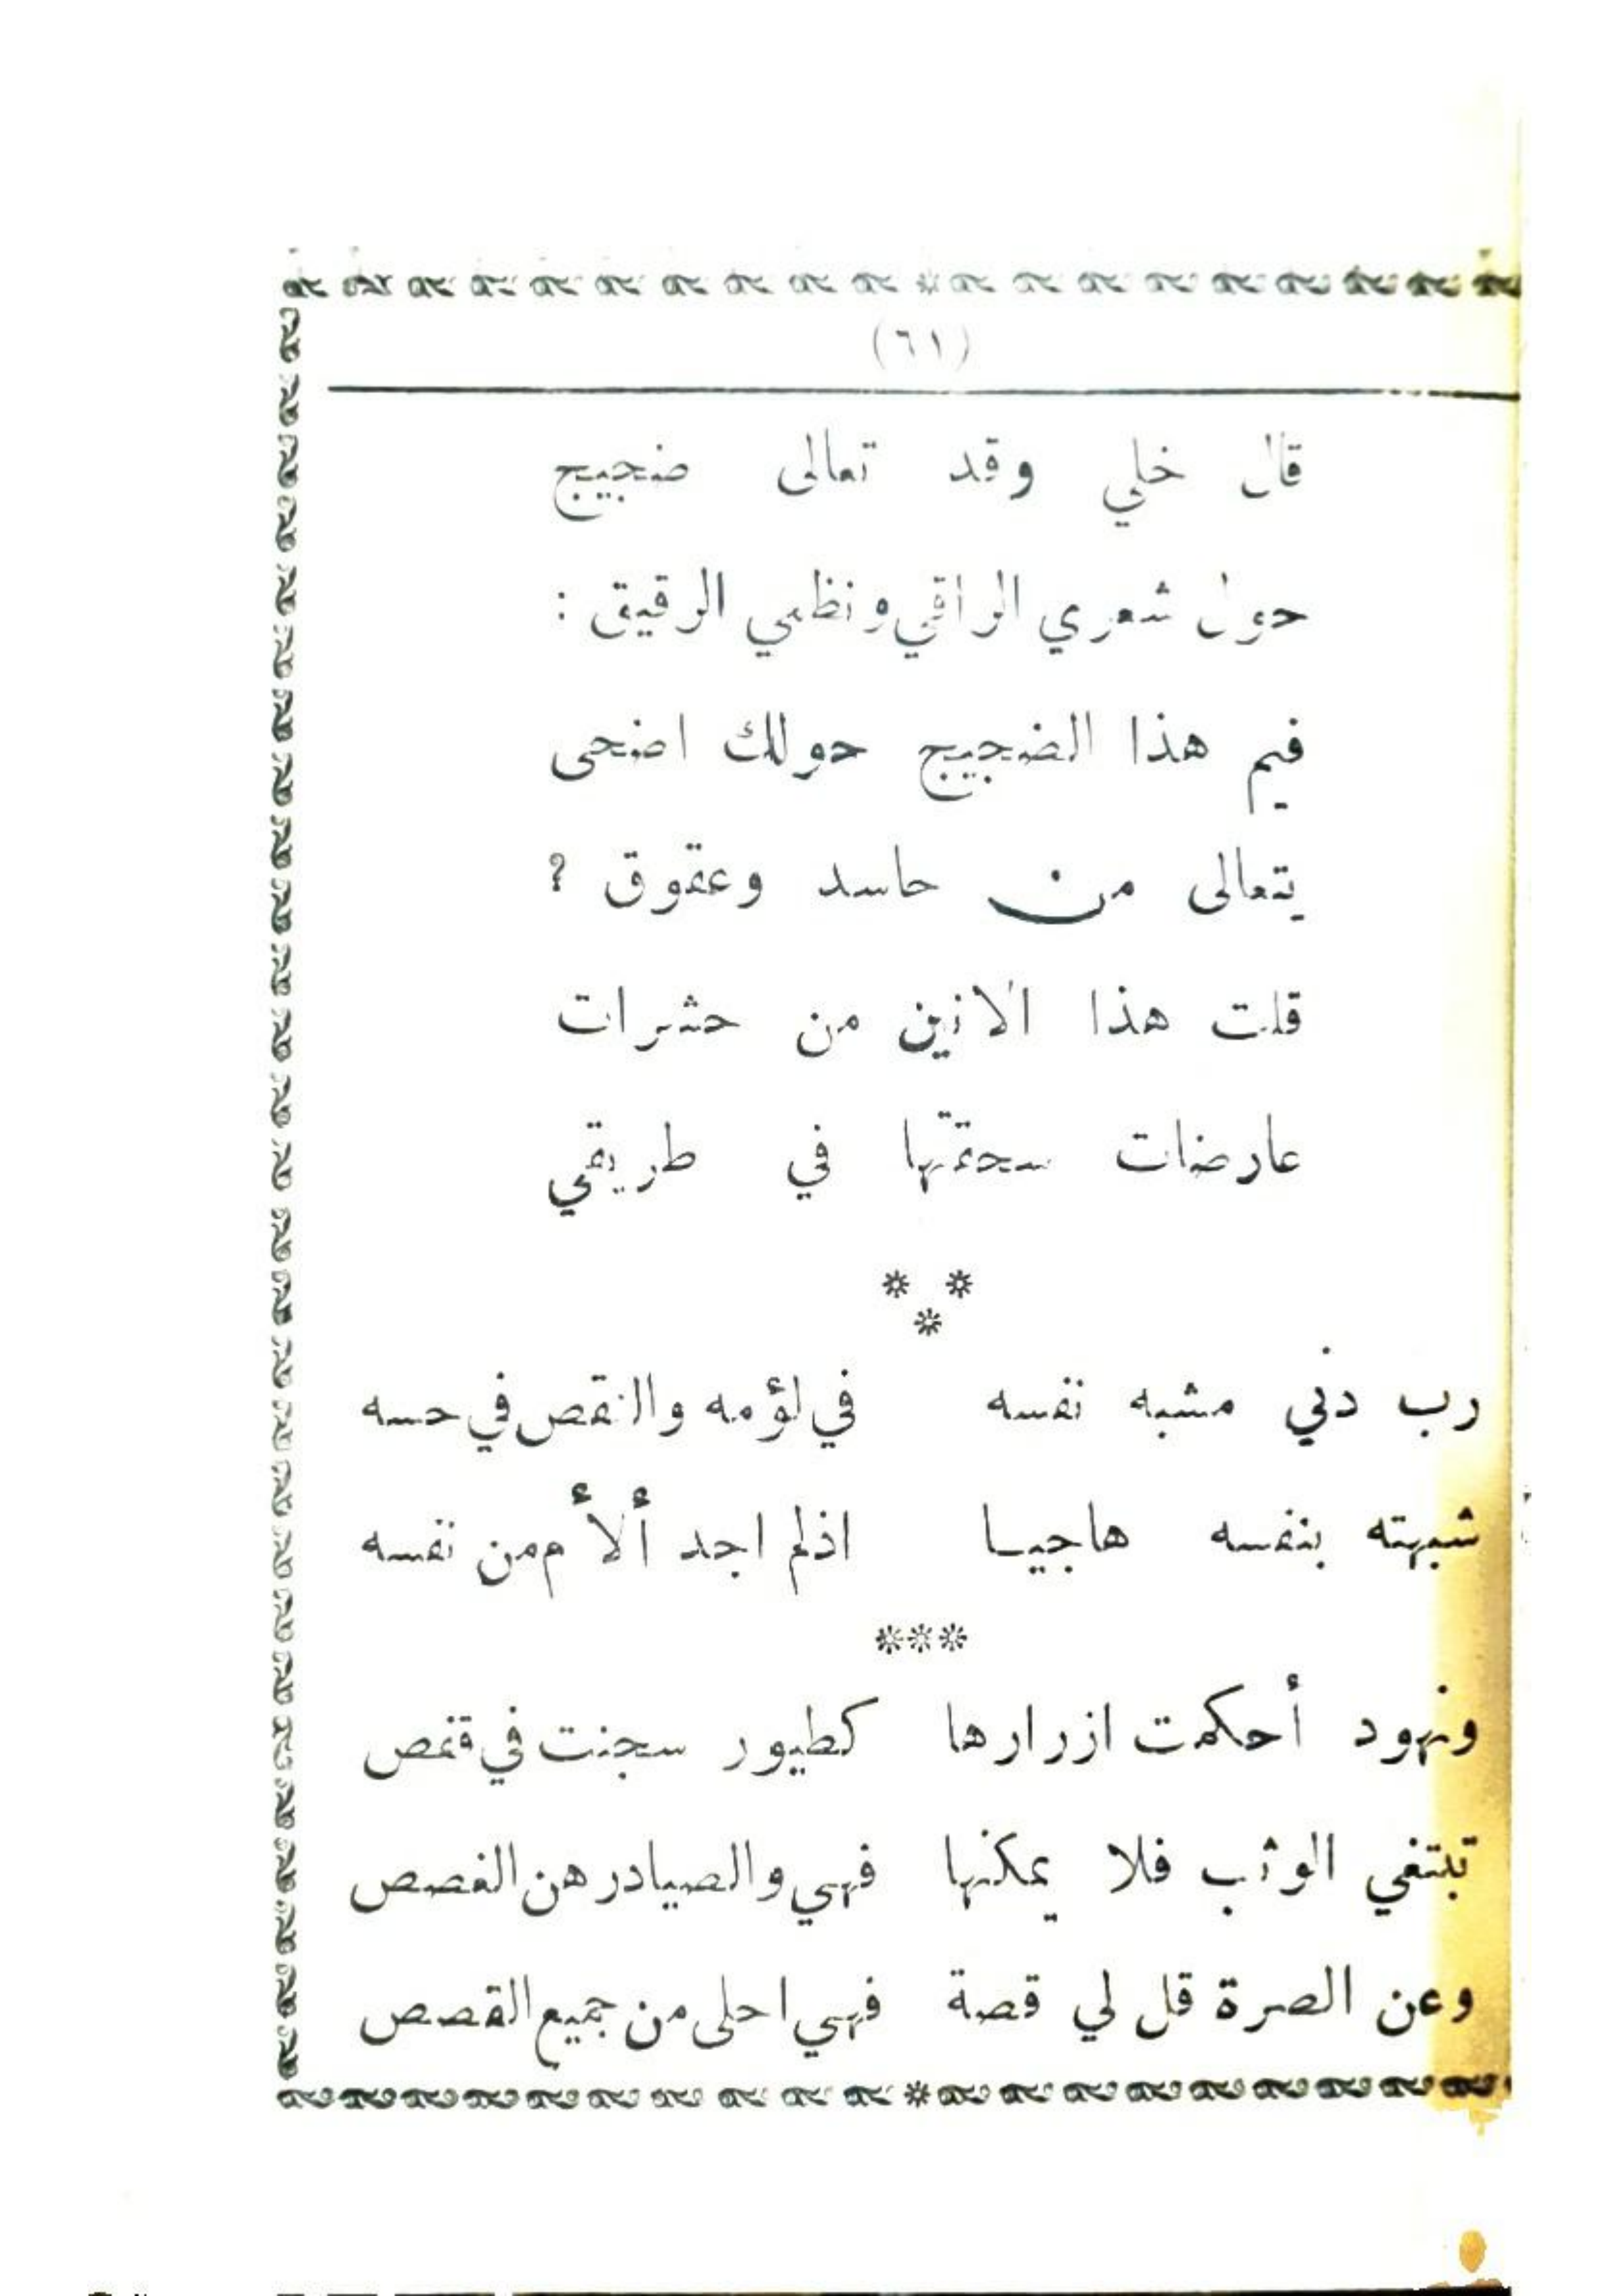 (٦١)
قال خلي وقد تعالى ضجيج
حول شعري الراقي ونظمي الرقيق :
فيم هذا الضجيج حولك اضحى
يتعالى من حاسد وعقوق ?
قلت هذا الانين من حشرات
عارضات سحقتها في طريقي
* *
*
رب دني مشبه نفسه في لؤمه والنقص في حسه
شبهته بنفسه هاجيا اذلم اجد ألأم من نفسه
***
ونهود أحكمت ازرارها كطيور سجنت في قفص
تبتغي الوثب فلا يمكنها فهي والصيادر هن الغصص
وعن الصرة قل لي قصة فهي احلى من جميع القصص